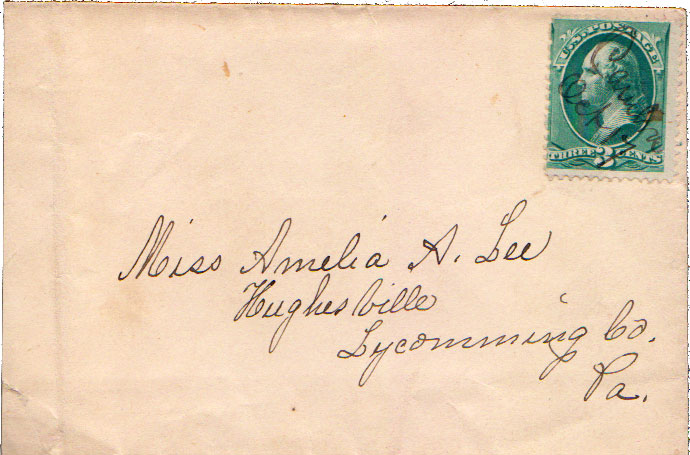 U.S. POSTAGE
Oct 17
THREE 3 CENTS
Miss Amelia A. Lee
Hughesville
Lycomming Co.
Pa.